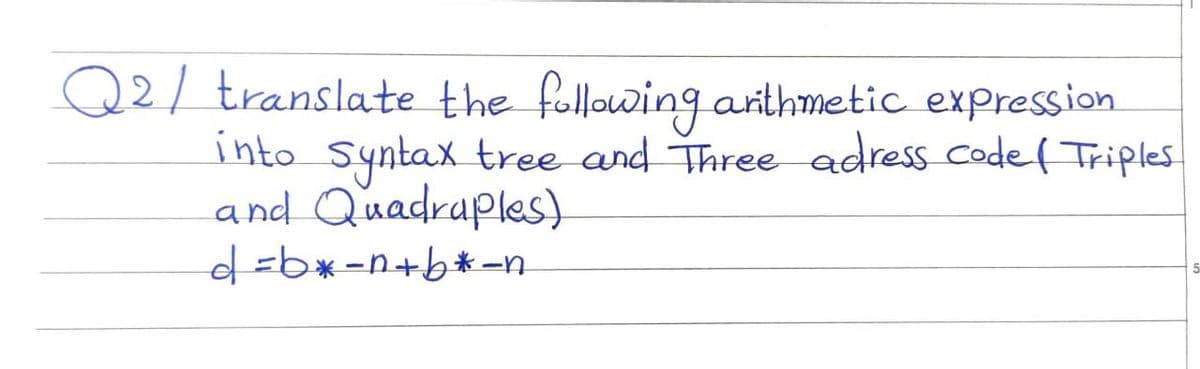 Q2/ translate the following arithmetic expression
into syntax tree and Three adress code( Triples
and Quadruples)
d=b*-n+b*-n
5